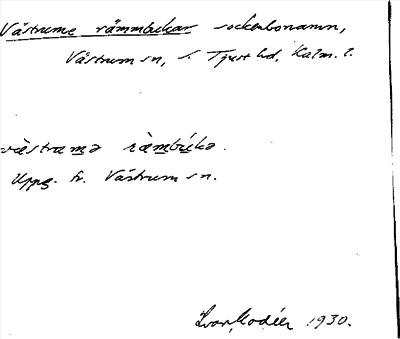 Västrume rämmbukar sockenbonamn,
Västrum sn, S. Tjust hd, Kalm. l.
västramə ràmbúkə.
Uppg. fr. Västrum sn.
Ivar Modéer 1930.